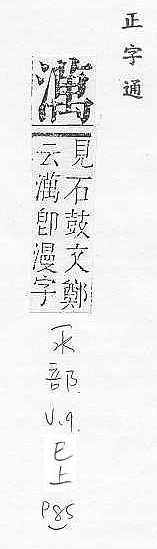 正字通
澫
見石鼓文鄭
云澫卽漫字
水部
V.9.
巳上
P85